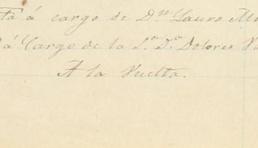 tá á cargo de Dn Lauro M
á Cargo de la Sra Da Dolores
A la Vuelta.